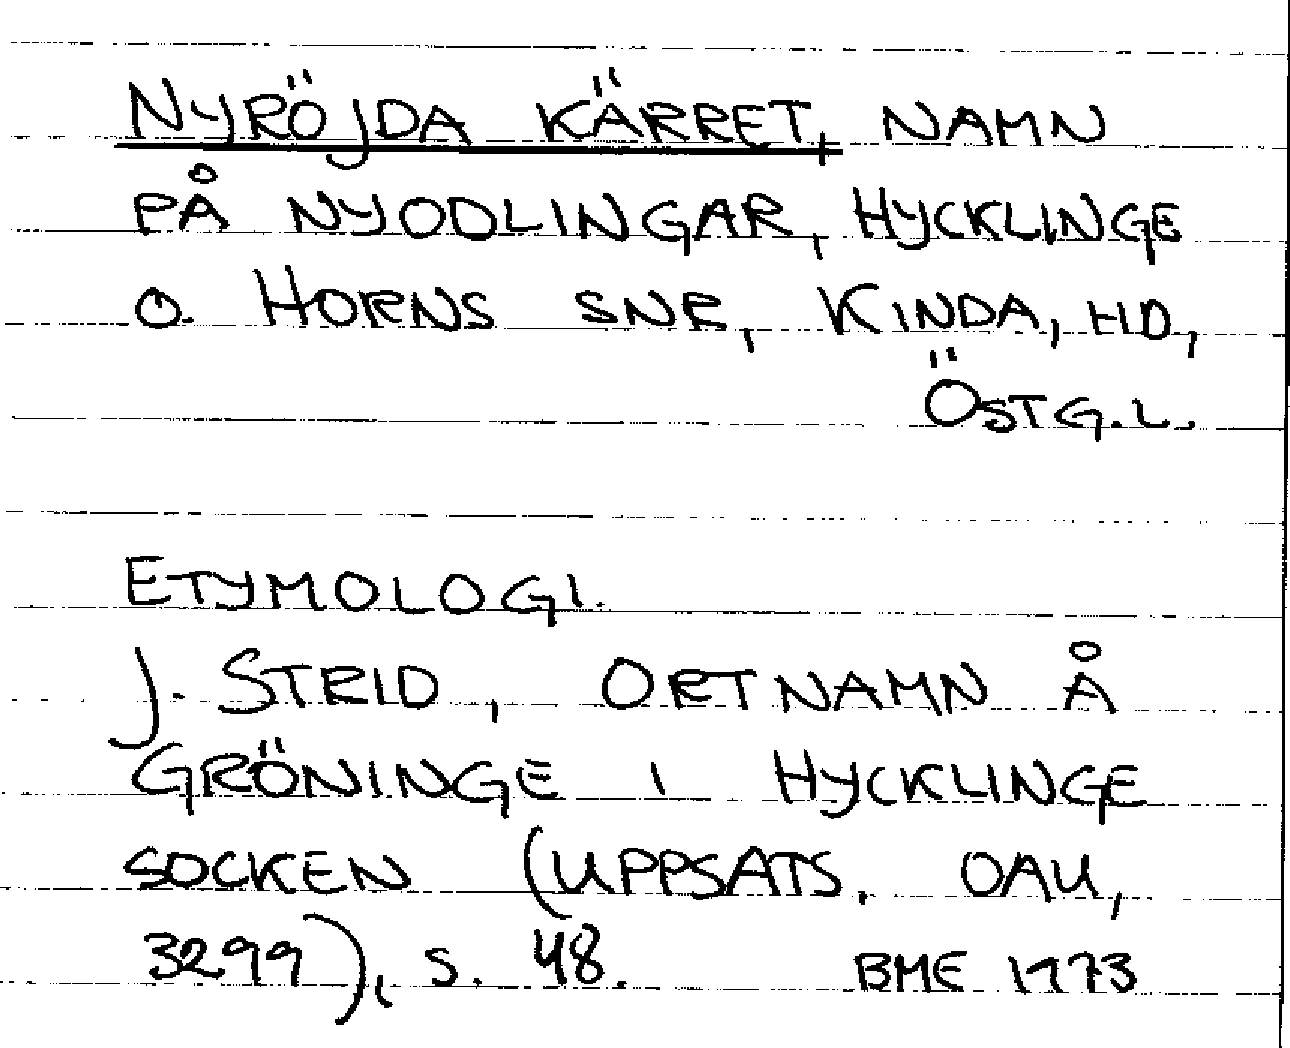 NYRÖJDA KÄRRET, NAMN
PÅ NYODLINGAR, HYCKLINGE
O. HORNS SNR, KINDA, HD,
ÖSTG.L.
ETYMOLOGI.
J. STRID, ORTNAMN Å
GRÖNINGE I HYCKLINGE
SOCKEN (UPPSATS. OAU,
3299), S. 48. BME 1973